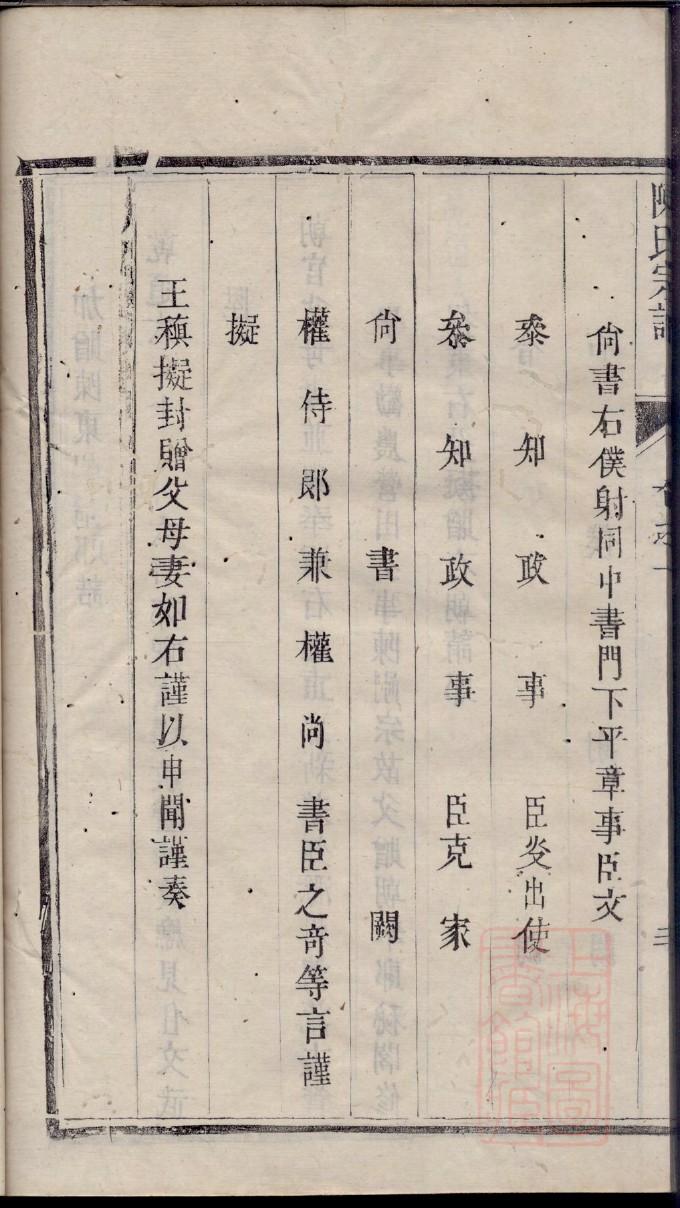 陳氏宗譜
卷之一
二
尙書右僕射同中書門下平章事臣文
叅知政事臣炎出使
叅知政事臣克家
尙書闕
權侍郞兼右權尙書臣之奇等言謹
擬
王稹擬封贈父母妻如右謹以申聞謹奏